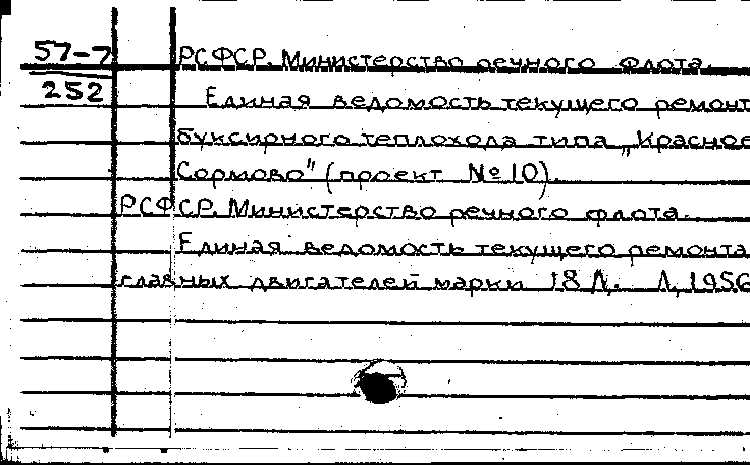 57-7 РСФСР. Министерство речного флота.
252 Единая ведомость текущего ремонт
буксирного теплохода типа „Красное
Сормово" (проект № 10).
РСФСР. Министерство речного флота.
Единая ведомость текущего ремонта
главных двигателей марки 18 Л. Л, 1956